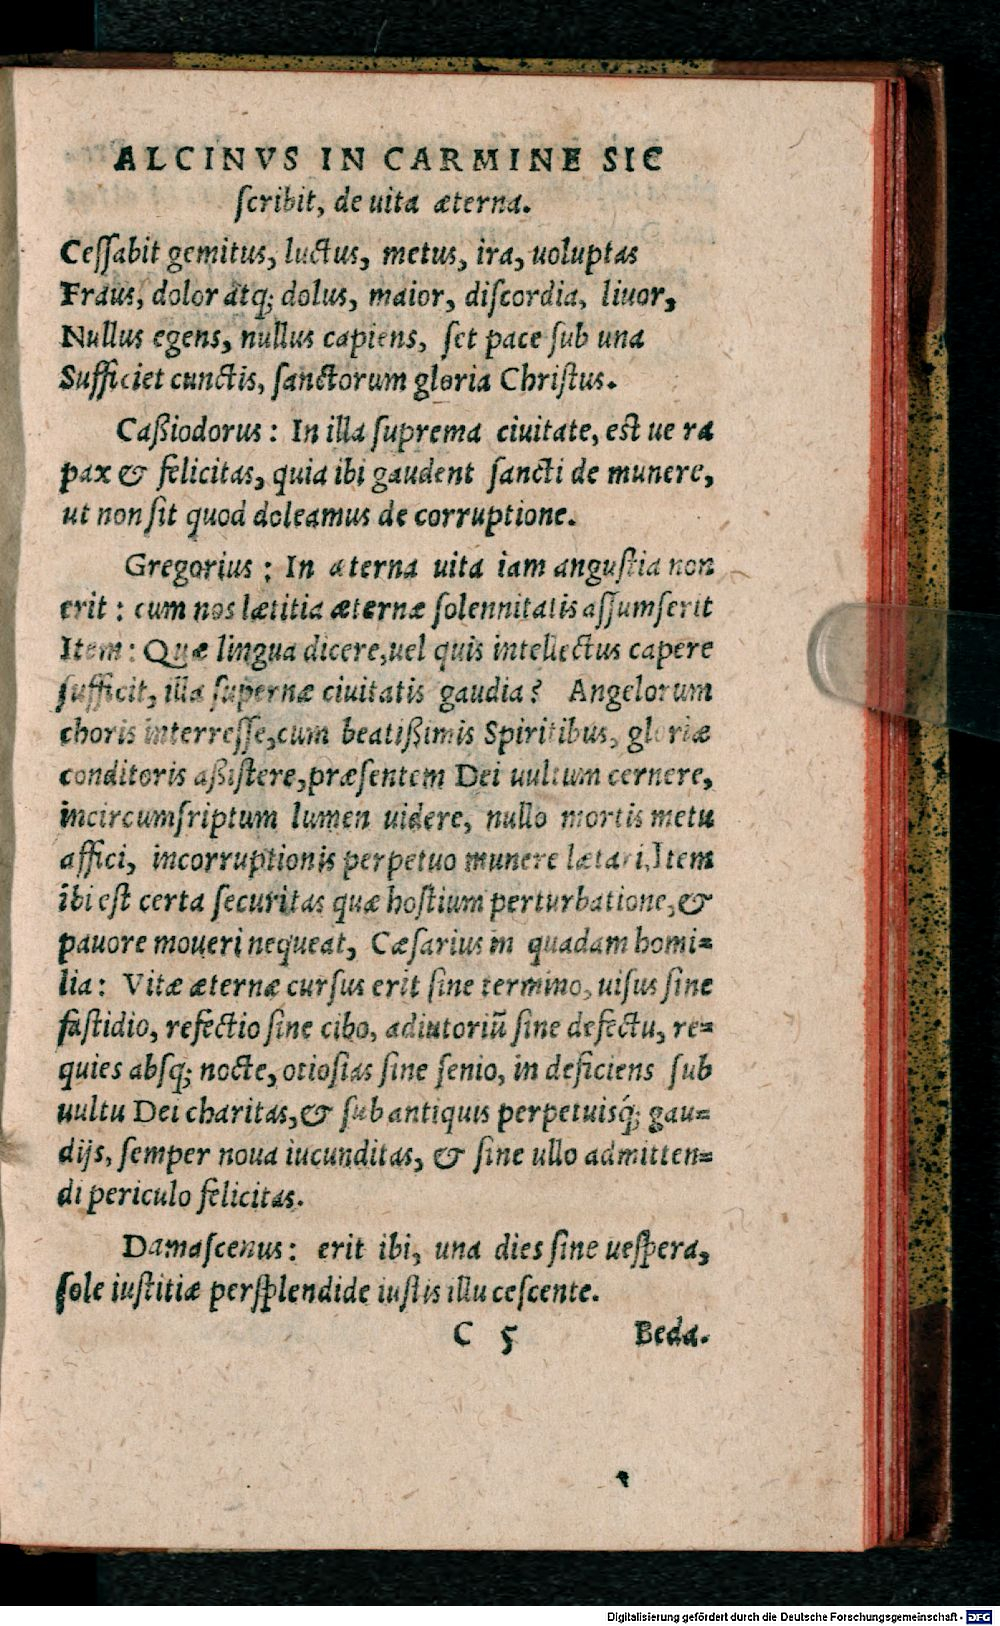 ALCINVS IN CARMINE SIC
ſcribit, de uita æterna.
Ceſſabit gemitus, luctus, metus, ira, uoluptas
Fraus, dolor atq; dolus, maior, diſcordia, liuor,
Nullus egens, nullus capiens, ſet pace ſub una
Sufficiet cunctis, ſanctorum gloria Chriſtus.
Caßiodorus: In illa ſuprema ciuitate, eſt ue ra
pax & felicitas, quia ibi gaudent ſancti de munere,
ut non ſit quod doleamus de corruptione.
Gregorius: In æterna uita iam anguſtia non
erit: cum nos lætitia æternæ ſolennitatis aſſumſerit
Item: Quæ lingua dicere, uel quis intellectus capere
ſufficit, illa ſupernæ ciuitatis gaudia? Angelorum
choris interreſſe, cum beatißimis Spiritibus, gloriæ
conditoris aßiſtere, præſentem Dei uultum cernere,
incircumſriptum lumen uidere, nullo mortis metu
affici, incorruptionis perpetuo munere lætari. Item
ibi eſt certa ſecuritas quæ hoſtium perturbatione, &
pauore moueri nequeat, Cæſarius in quadam homi=
lia: Vitæ æternæ curſus erit ſine termino, uiſus ſine
faſtidio, refectio ſine cibo, adiutoriũ ſine defectu, re=
quies abſq; nocte, otioſitas ſine ſenio, in deficiens ſub
uultu Dei charitas, & ſub antiquis perpetuisq́; gau=
dijs, ſemper noua iucunditas, & ſine ullo admitten=
di periculo felicitas.
Damaſcenus: erit ibi, una dies ſine ueſpera,
ſole iuſtitiæ perſplendide iuſtis illu ceſcente.
C 5 Beda.
Digitalisierung gefördert durch die Deutsche Forschungsgemeinschaft - DFG